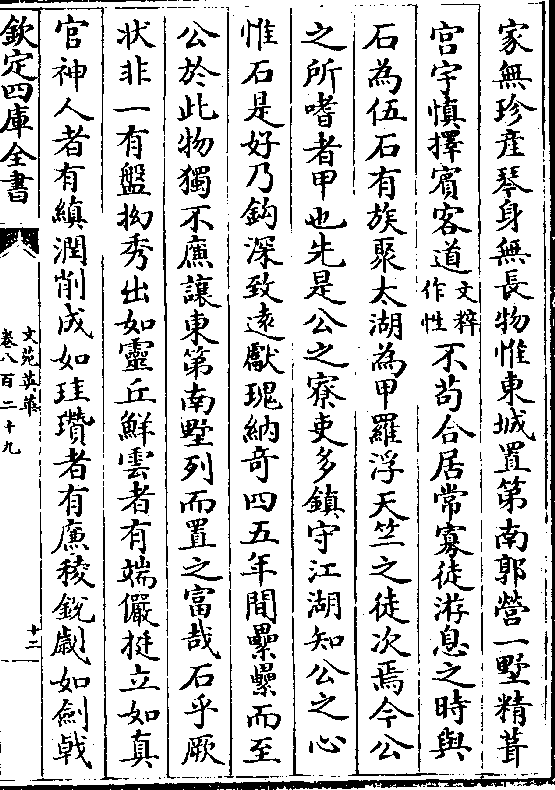 家無珍產琴身無長物惟東城置第南郭營一墅精葺
宮宇慎擇賓客道文粹作性不苟合居常寡徒游息之時與
石為伍石有族聚太湖為甲羅浮天竺之徒次焉今公
之所嗜者甲也先是公之寮吏多鎮守江湖知公之心
惟石是好乃鈎深致遠獻瑰納奇四五年間纍纍而至
公於此物獨不廉讓東第南墅列而置之富哉石乎厥
状非一有盤拗秀出如靈丘鮮雲者有端儼挺立如真
官神人者有縝潤削成如珪瓚者有廉稜銳劌如劍戟
欽定四庫全書
文苑英華
卷八百二十九
十二